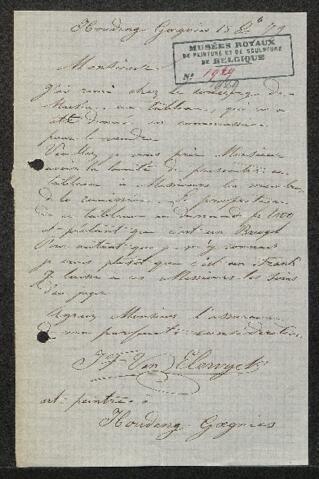 Houdeng Gœgnies 15 8bre 79
MUSÉES ROYAUX
DE PEINTURE ET DE SCULPTURE
DE BELGIQUE
N° 1929
Monsieur
J'ai remis chez le concierge du
Musée, un tableau, qui m'a
été donné en commission
pour le vendre
Veuillez je vous prie Monsieur
avoir la bonté de présenter ce
tableau à Messieurs les membres
de la commission. Le propriétaire
de ce tableau en demande 1500
et prétend que c'est un
Pour autant que je m'y connais
je crois plutôt que c'est un Frank
Je laisse à ces Messieurs les soins
d'en juger
Agréez Monsieur l'assurance
de ma parfaite considération
Jph Van Elewyck
art: peintre à
Houdeng Gœgnies